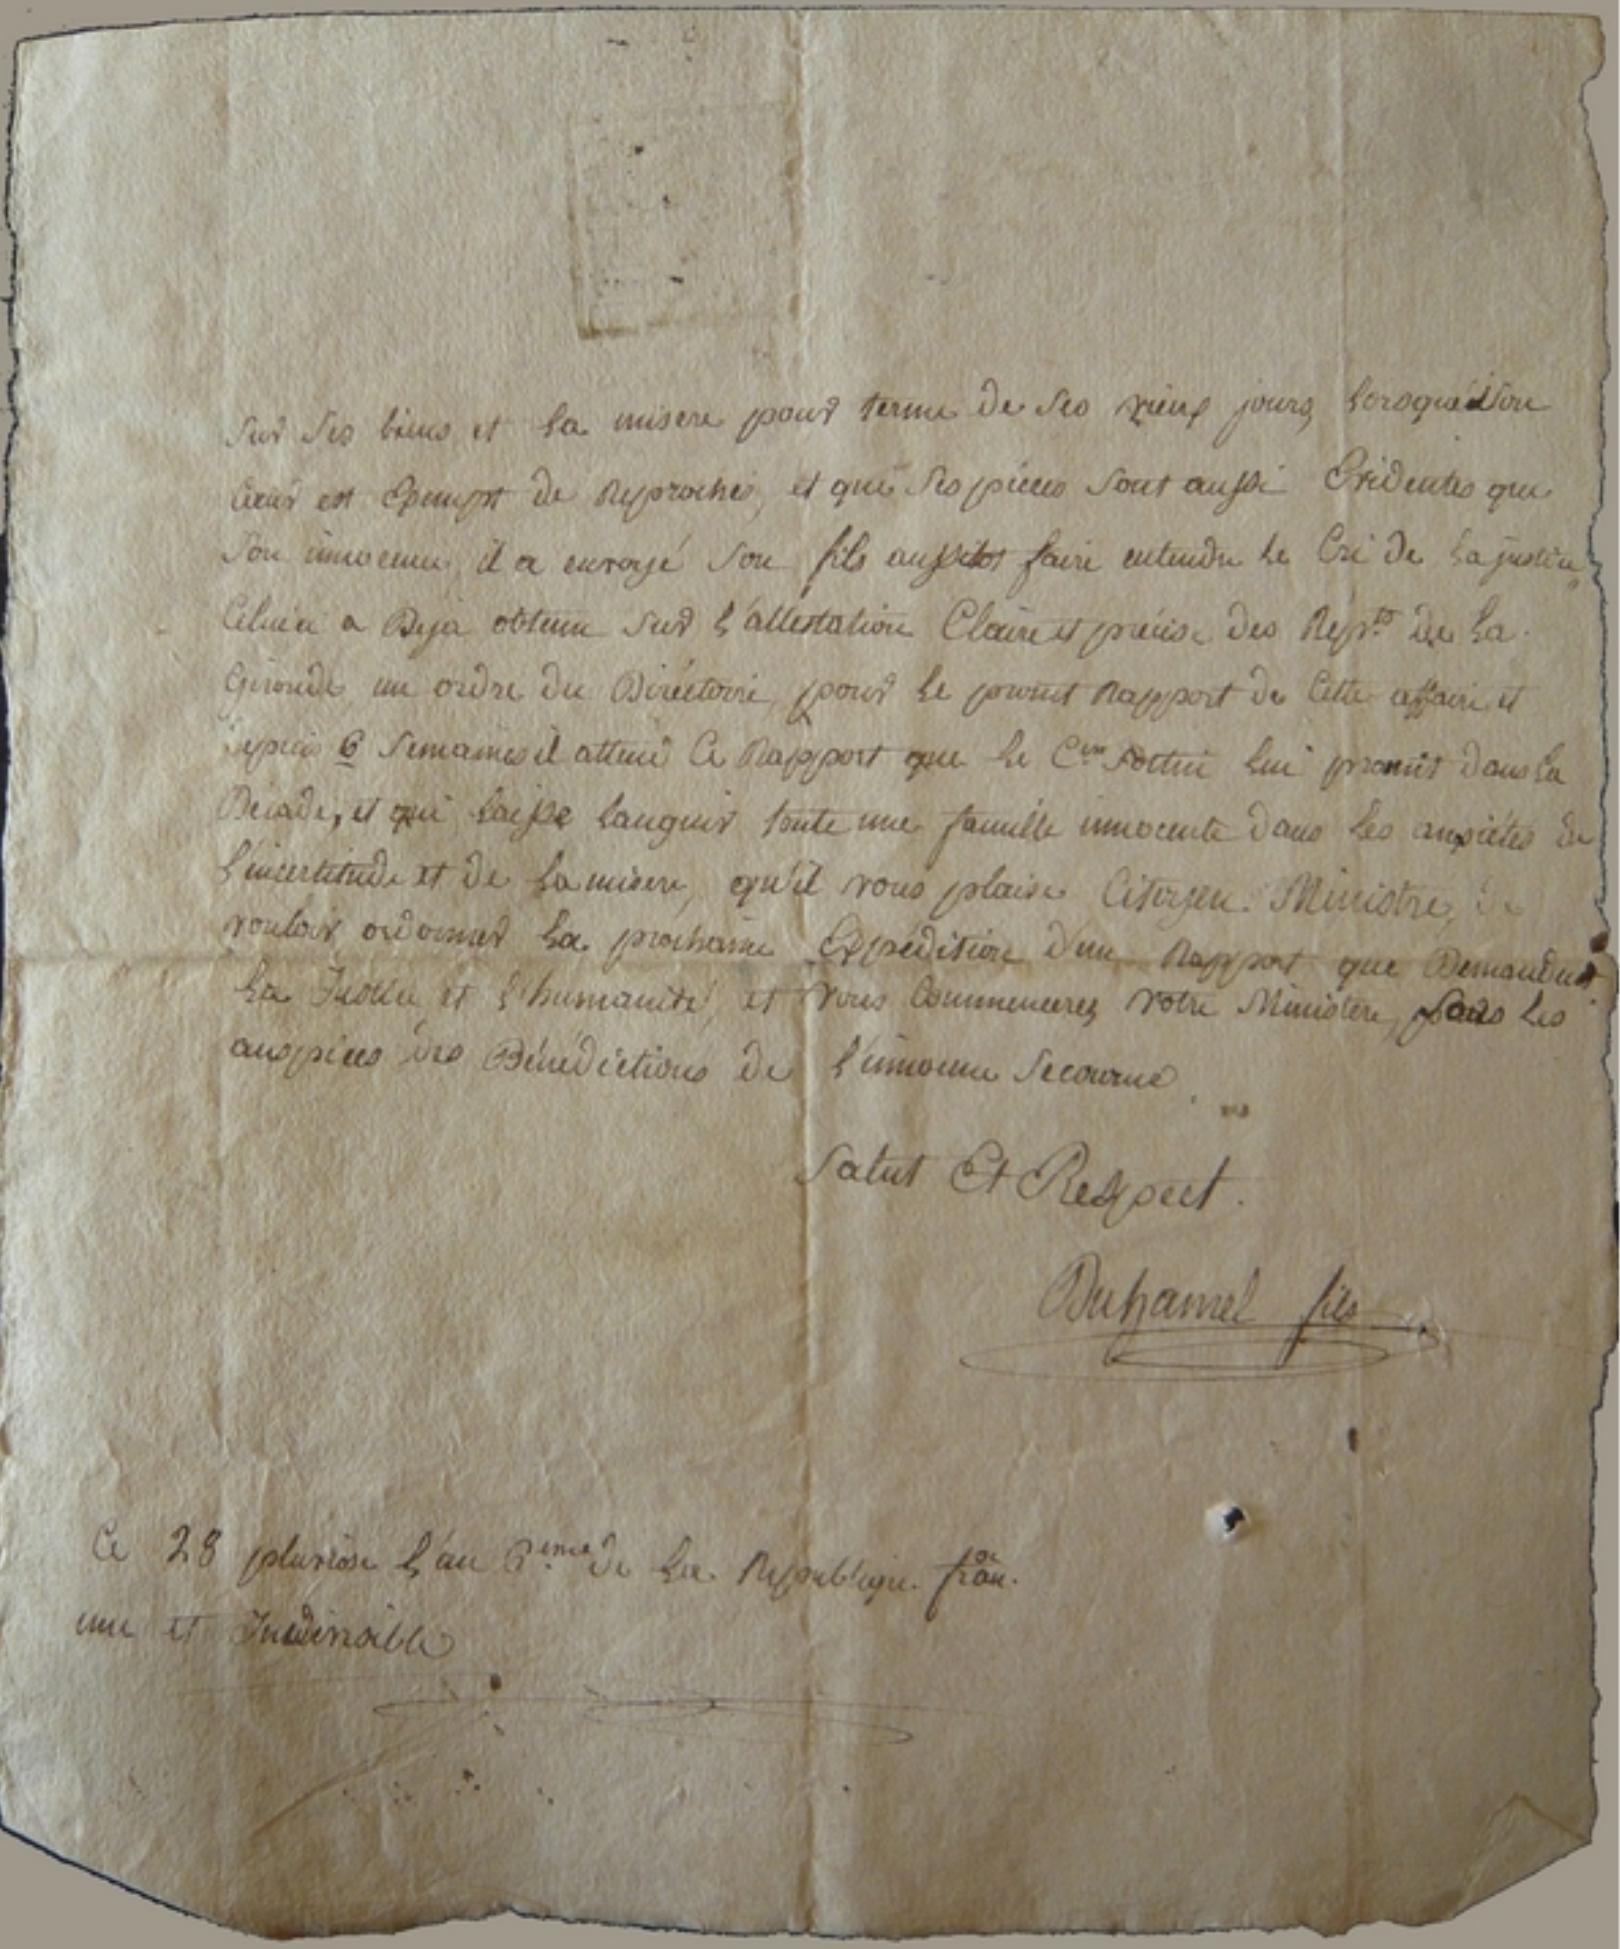 sur ses biens et la misere pour terme de ses vieux jours, lorsque Son
Cœur est Exempt de Reproches, et que Ses pieces Sont aussi Evidentes que
Son innocence, il a envoyé Son fils aussitot faire entendre le Cri de la justice,
Celui ci a Deja obtenu Sur l'attestation Claire et précise des Rep.ts de la
Gironde, un ordre du Diréctoire, pour le promt Rapport de Cette affaire et
depuis 6 Semaines il attend Ce Rapport que le C.en lui promit dans la
Décade, et qui laisse languir toute une famille innocente dans les anxiétés de
l'incertitude et de la misere, qu'il vous plaise Citoyen Ministre, de
vouloir ordonner la prochaine Expédition d'un Rapport que Demandent
la Justice et l'humanité, et vous Commencerez votre Ministere, sous les
auspices des Bénédictions de l'innocence Secourue
Salut Et Respect.
Duhamel fils
Ce 28 pluviose l'an 6.eme de la Republique fran.
une et Indivisible